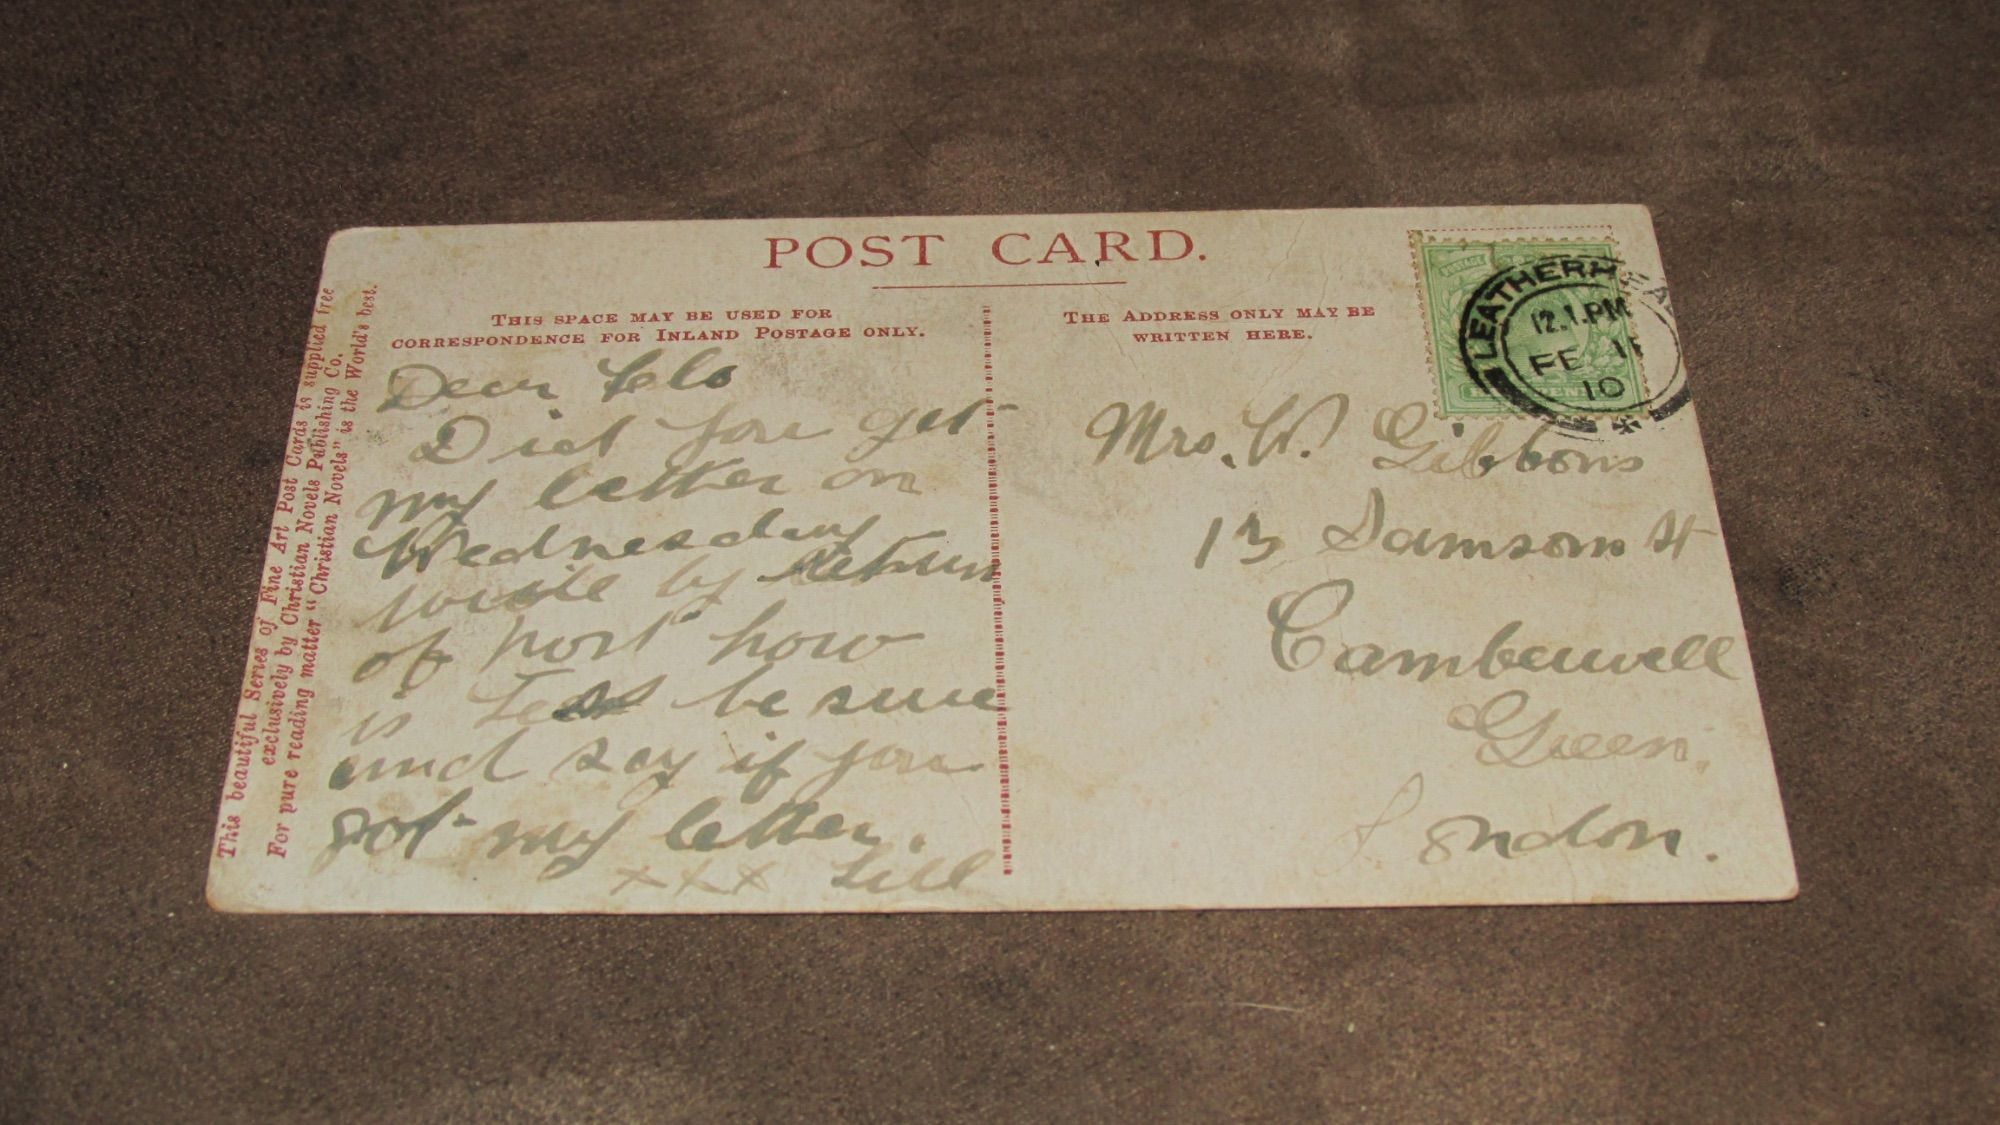 POST CARD.
This beautiful Series of Fine Art Post Cards is supplied free
exclusively by Christian Novels Publishing Co.
For pure reading matter "Christian Novels" is the World's best.
THIS SPACE MAY BE USED FOR
CORRESPONDENCE FOR INLAND POSTAGE ONLY.
Dear Flo
Did you get
my letter on
Wednesday
write by return
of post how
is be sure
and say if you
got my letter.
xxx Lill
THE ADDRESS ONLY MAY BE
WRITTEN HERE.
Mrs. W. Gibbons
13 Samson St
Camberwell
Green.
London.
POSTAGE
LEATHERHEAD
12.1.PM
FE 1
10